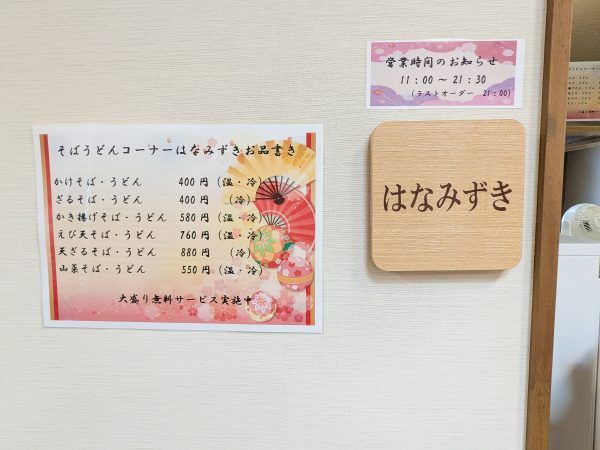 営業時間のお知らせ
11：00～21：30
（ラストオーダー　21：00）
はなみずき
そばうどんコーナーはなみずきお品書き
かけそば・うどん　400円（温・冷）
ざるそば・うどん　400円　（冷）
かき揚げそば・うどん　580円（温・冷）
えび天そば・うどん　760円（温・冷）
天ざるそば・うどん　880円　（冷）
山菜そば・うどん　550円（温・冷）
大盛り無料サービス実施中